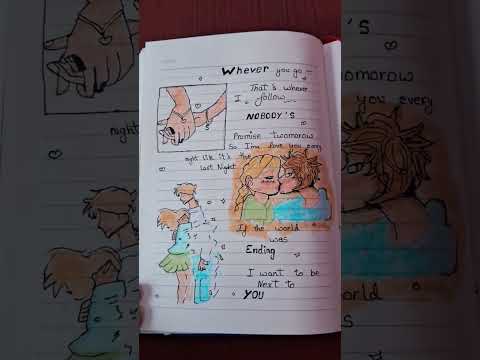 Whever you go -
That's whever
I follow
NOBODY'S
Promise twomorow
So I'ma love you every
night like it's the
last Night
If the world
was
Ending
I want to be
Next to
YOU